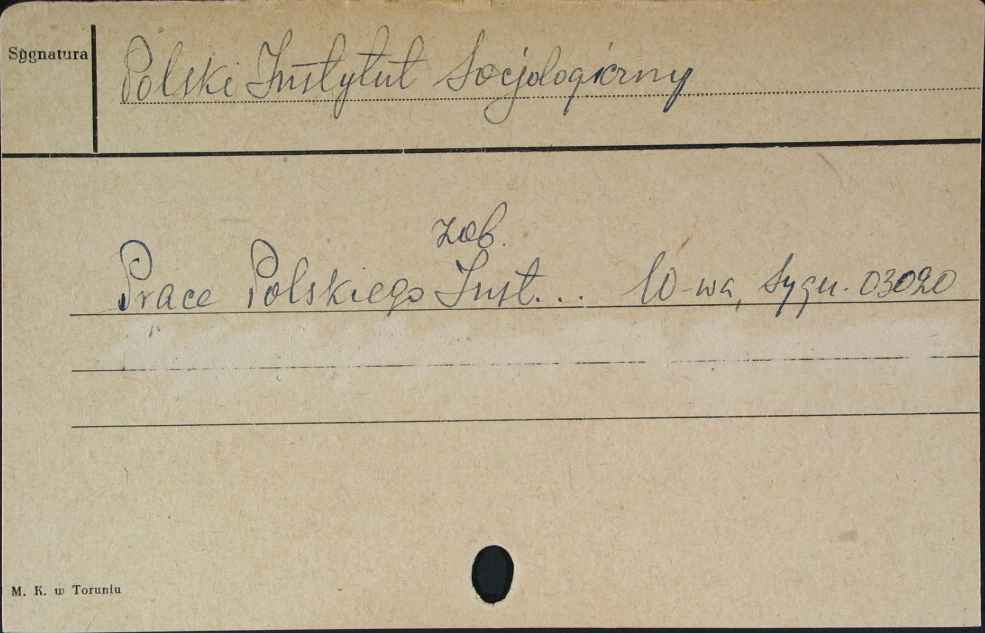 Sygnatura
Polski Instytut Socjologiczny
zob.
Prace Polskiego Inst... W-wa, Sygn. 03020
M. K. w Toruniu